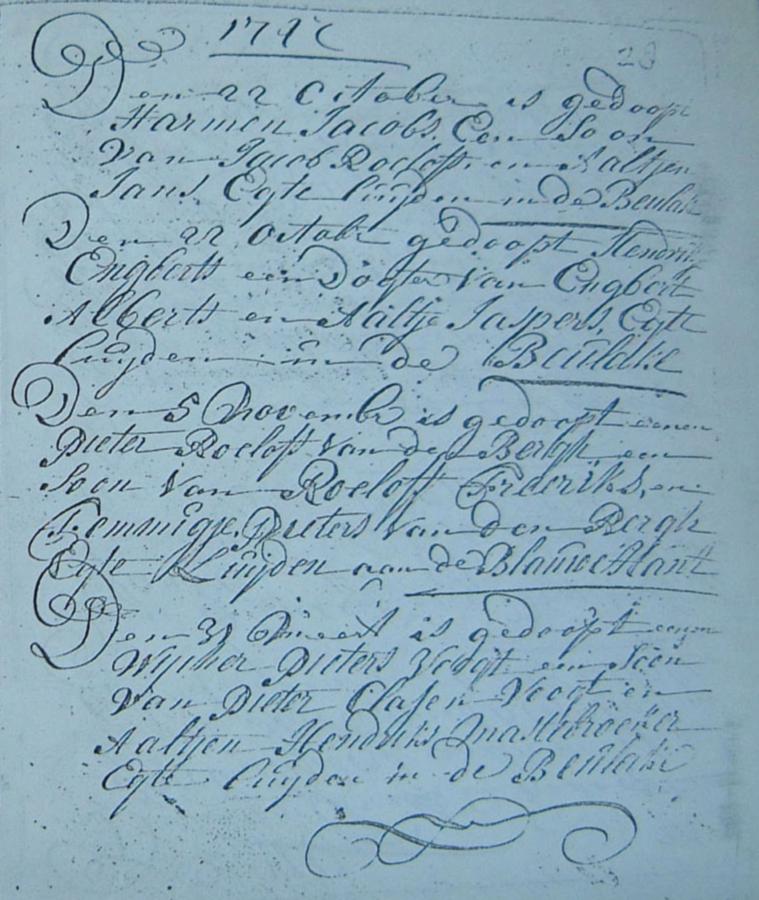 28
Den 22 October is gedoopt
Harmen Jacobs. Een Soon
Van Jacob Roelofs. en Aaltjen
Jans. Egte luijden in de Beulake
Den 22 octobr gedoopt Hendrik
Engberts een Dogter van Engbert
Alberts en Aaltje Jaspers. Egte
luijden in de Beulake
Den 5 Novembr is gedoopt eenen
Pieter Roelofs Van den Bergh een
Soon Van Roeloff Frederiks, en
Femmigje. Pieters Van den Bergh
Egte Luijden aan de Blauwe Hant
Den 31 is gedoopt eenen
Wycher Pieters Voogt een Soon
Van Pieter Clasen Voogt en
Aaltjen Hendriks Mastebroeker
Egte luijden in de Beulake